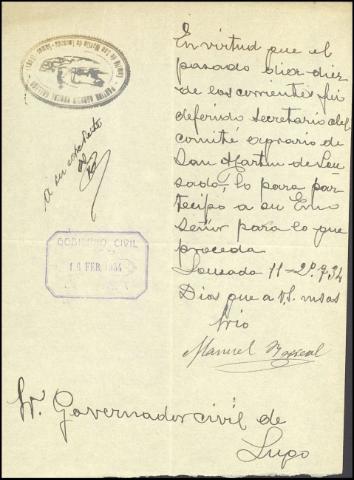 En virtud que el
pasado dia diez
de los corrientes fui
deferido secretario del
comité agrario de
San Martin de Lou
sada, lo para par-
tecipo a su Emo
Señor para lo que
proceda
Lousada 11-2º-934
Dios que a V.S. m as
Srio
Manuel
A su expediente
GOBIERNO CIVIL
FEB. 1934
Sr. Governador civil de
Lugo